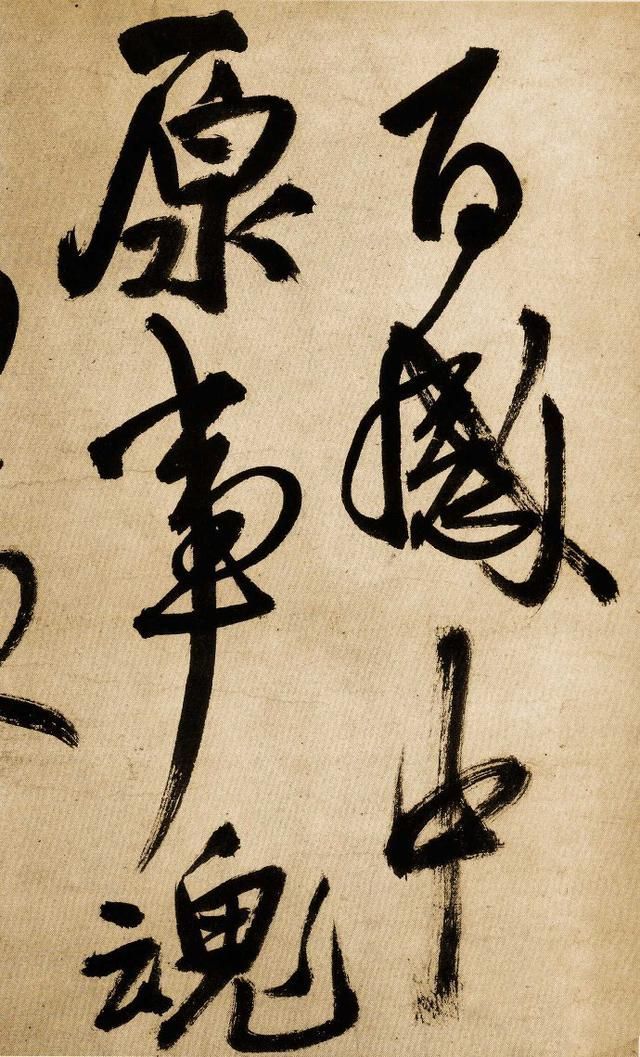 百感中
原事魂